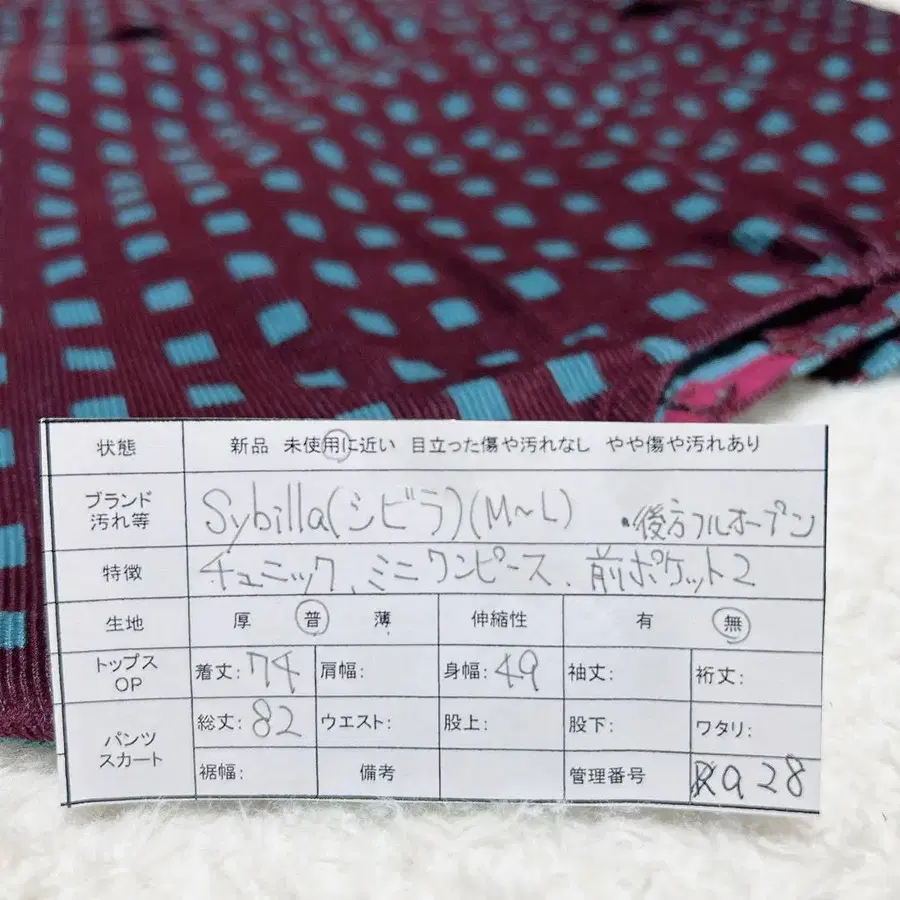 状態 新品 未使用に近い 目立った傷や汚れなし やや傷や汚れあり
ブランド
汚れ等 Sybilla(シビラ)(M~L) ・後方フルオープン
特徴 チュニック、ミニワンピース、前ポケット2
生地 厚 普 薄 伸縮性 有 無
トップス
OP 着丈:74 肩幅: 身幅:49 袖丈: 裄丈:
パンツ
スカート 総丈:82 ウエスト: 股上: 股下: ワタリ:
裾幅: 備考 管理番号 a28